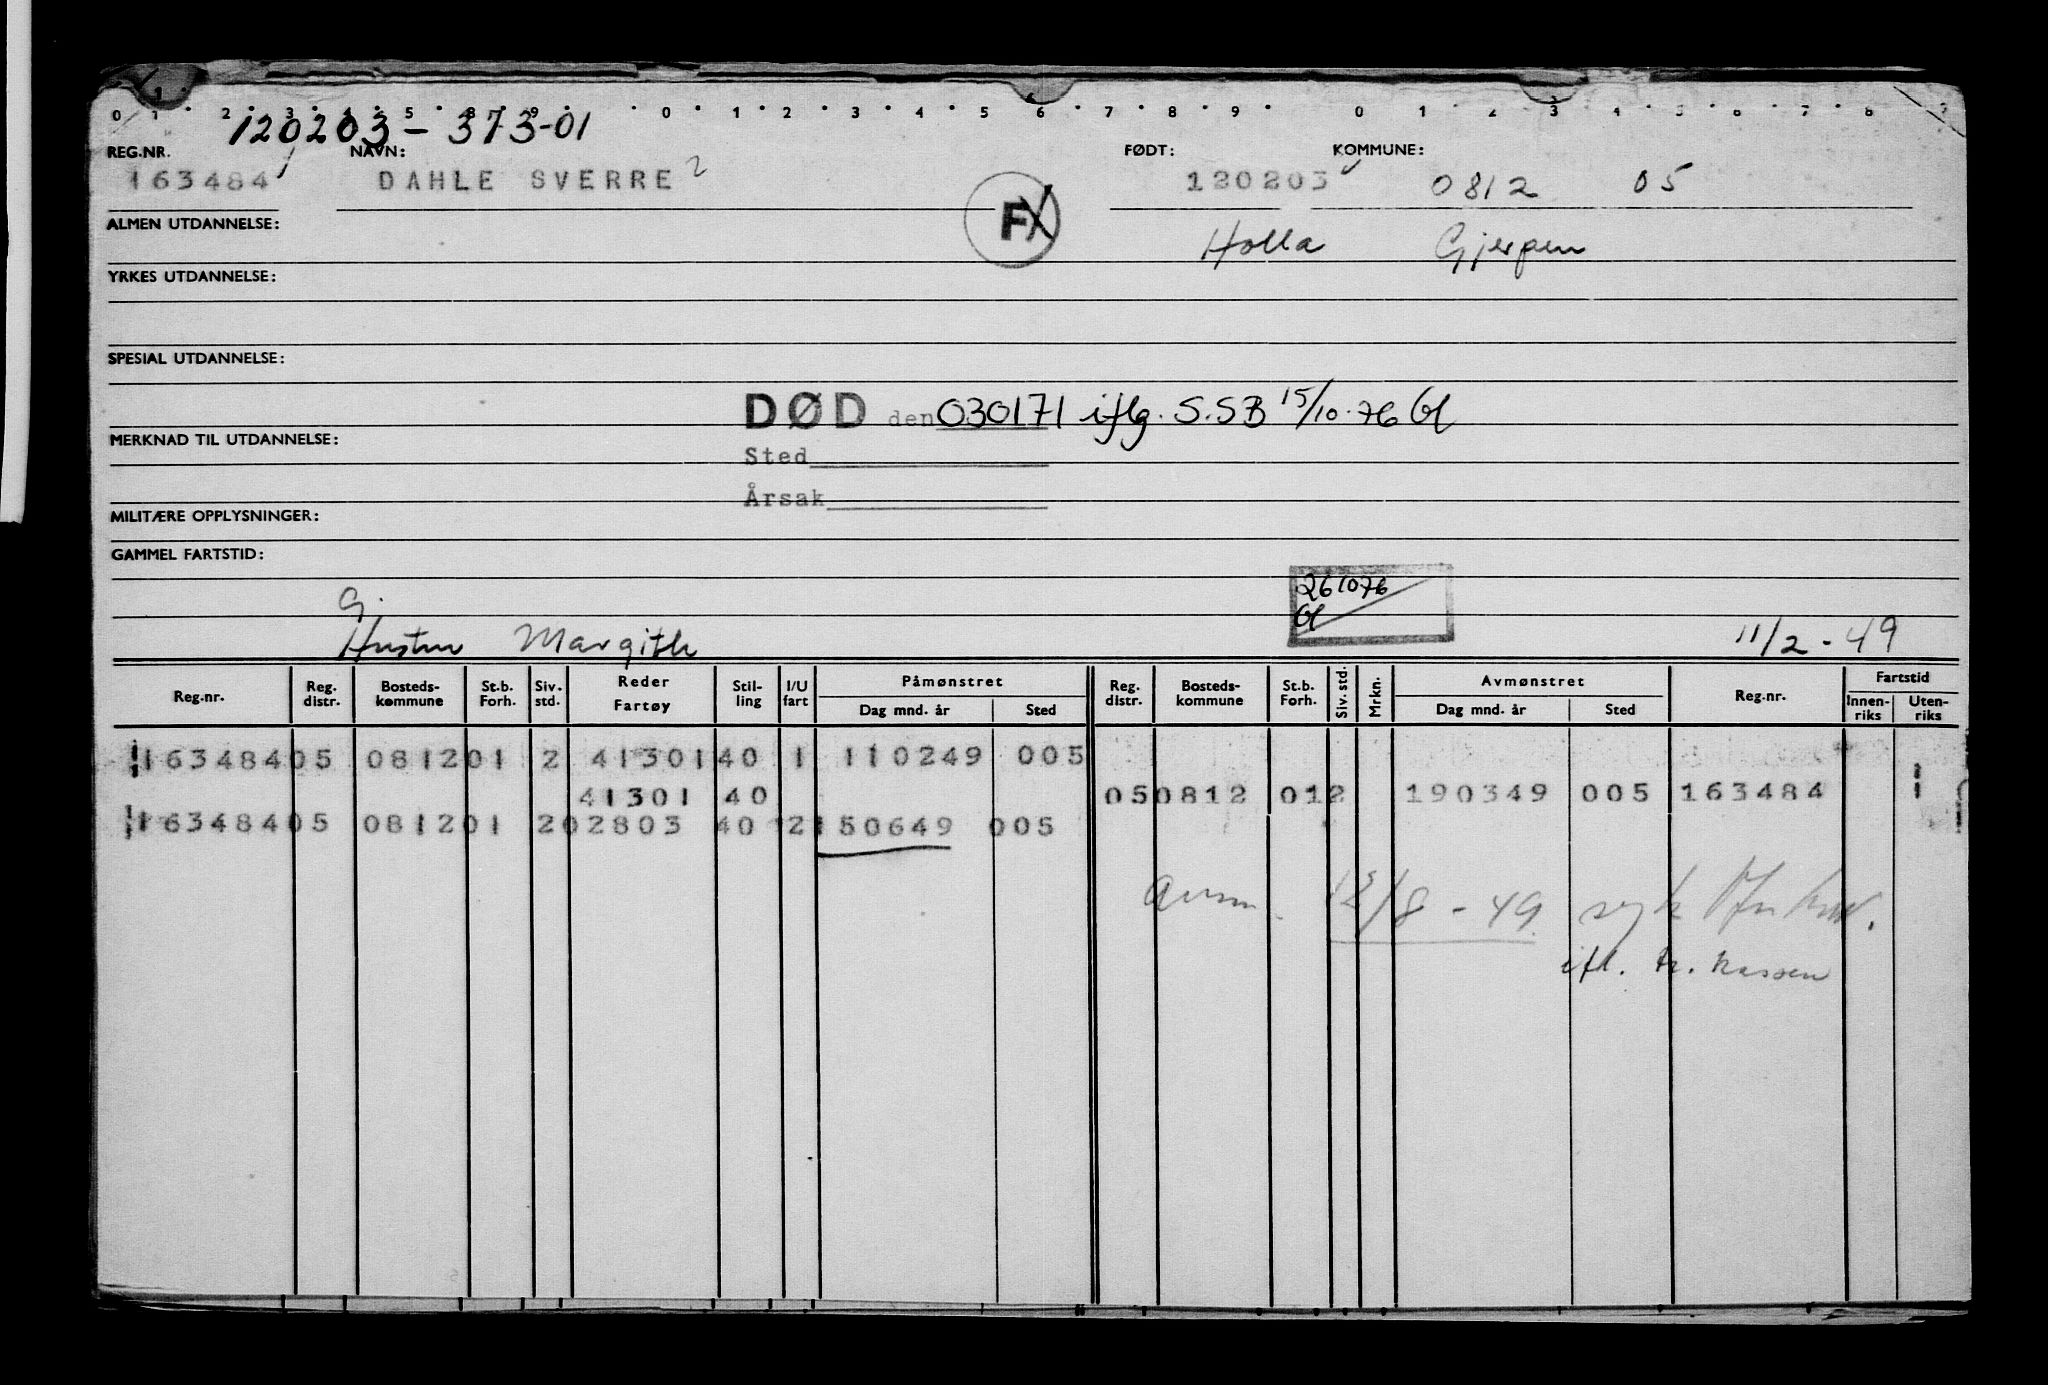 120203-373-01
REG.NR. NAVN: FØDT: KOMMUNE:
163484 DAHLE SVERRE 2 120203 0812 05
FX
ALMEN UTDANNELSE: Holla Gjerpen
YRKES UTDANNELSE:
SPESIAL UTDANNELSE:
DØD den 030171 iflg. S.SB 15/10.76
MERKNAD TIL UTDANNELSE:
Sted
Årsak
MILITÆRE OPPLYSNINGER:
GAMMEL FARTSTID:
261076
G.
Hustru Margith 11/2-49
Reg.nr. Reg. distr. Bosteds-kommune St.b. Forh. Siv. std. Reder Fartøy Stil-ling I/U fart Påmønstret Dag mnd. år Sted Reg. distr. Bosteds-kommune St.b. Forh. Siv. std. Mrkn. Avmønstret Dag mnd. år Sted Reg.nr. Fartstid Innen-riks Uten-riks
163484 05 0812 01 2 41301 40 1 110249 005
41301 40 05 0812 01 2 190349 005 163484 1
163484 05 0812 01 2 02803 40 2 150649 005
Avm. /8-49 syk
ifl. tr. kassen